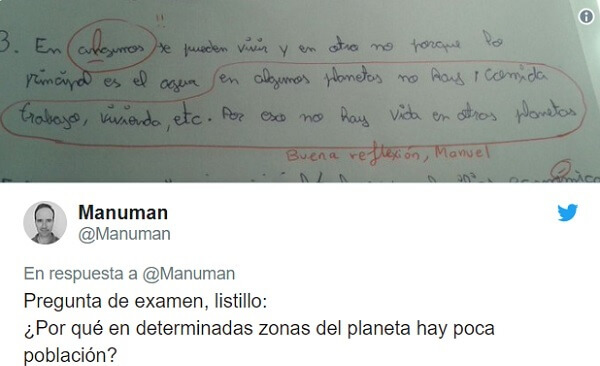 !!
3. En alhgunos se pueden vivir y en otro no porque lo
principal es el agua en algunos planetas no hay, comida
trabajo, vivienda, etc. Por eso no hay vida en otros planetas
Buena reflexión, Manuel
económico
Manuman
@Manuman
En respuesta a @Manuman
Pregunta de examen, listillo:
¿Por qué en determinadas zonas del planeta hay poca
población?